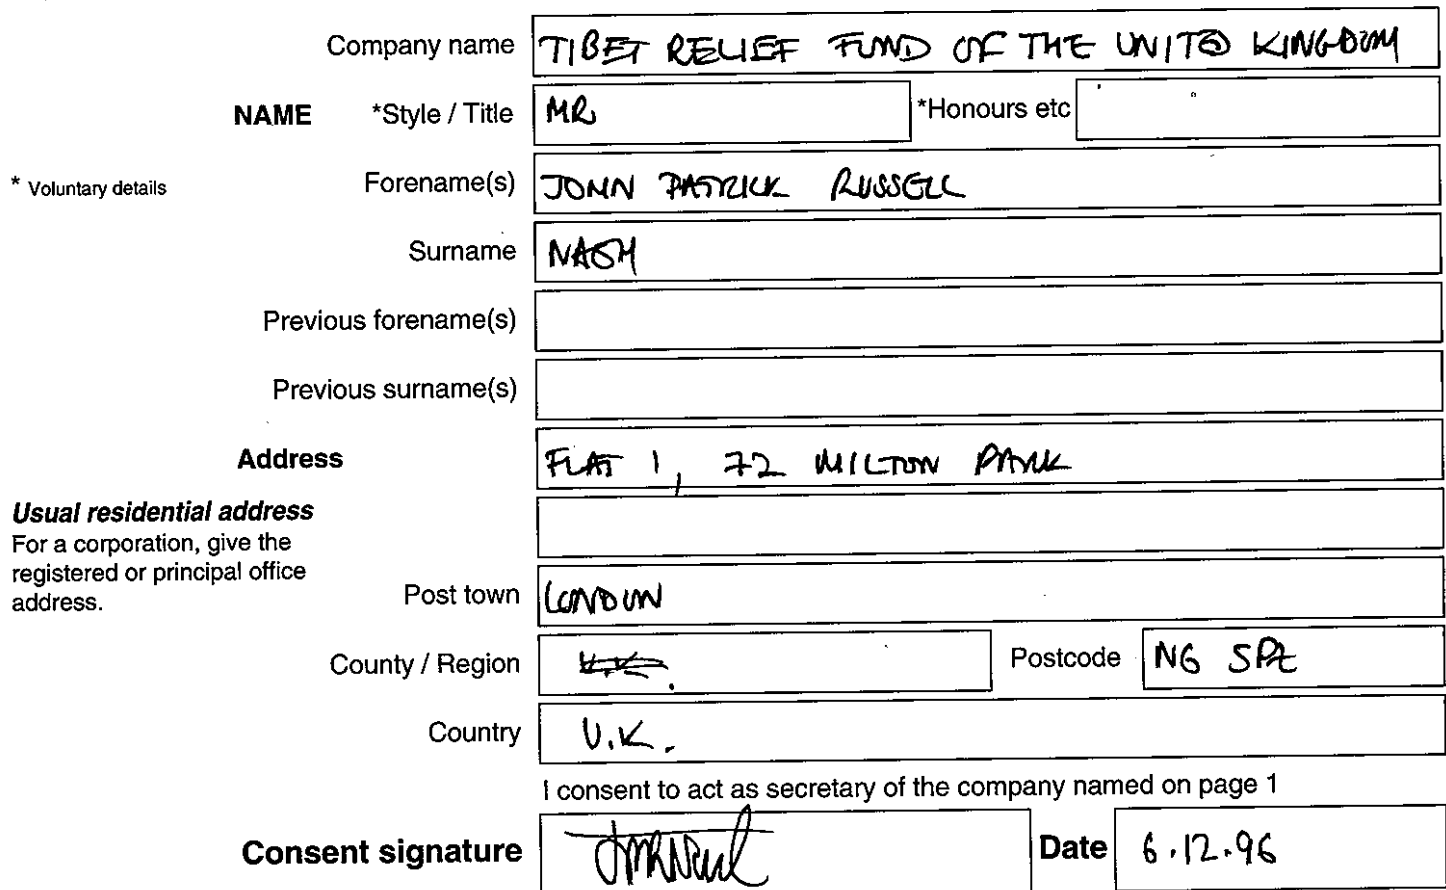 Company name TIBET RELIEF FUND OF THE UNITED KINGDOM
NAME *Style / Title MR *Honours etc
* Voluntary details Forename(s) JOHN PATRICK RUSSELL
Surname NASH
Previous forename(s)
Previous surname(s)
Address FLAT 1, 72 MILTON PARK
Usual residential address
For a corporation, give the
registered or principal office
address.
Post town LONDON
County / Region U.K. Postcode N6 5PZ
Country U.K.
I consent to act as secretary of the company named on page 1
Consent signature Date 6.12.96